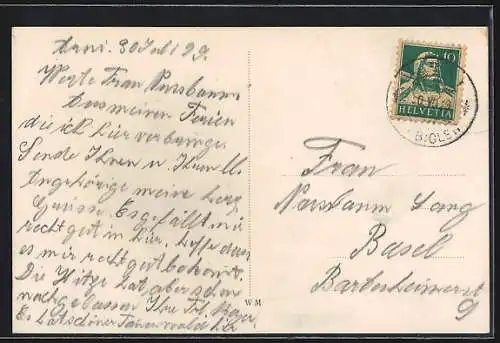 Arni. 30 Juli 29.
Werte Frau Nussbaum
Aus meinen Ferien
die ich hier verbringe.
Sende Ihnen u Ihren lb.
Angehörige meine herz
Grüsse. Es gefällt mir
recht gut in hier. hoffe dass
es mir recht gut bekomt.
Die Hitze hat aber schon
nachgelassen Ihre Frl.
WM
10
HELVETIA
BIGLEN
Frau
Nussbaum
Basel
Bartenheimerst
9